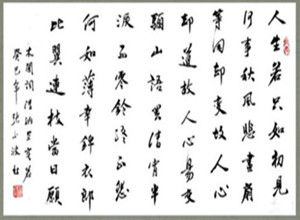 人生若只如初見
何事秋風悲畫扇
等閒却變故人心
却道故人心易變
驪山語罷清宵半
淚雨零鈴終不怨
何如薄幸錦衣郎
比翼連枝當日願
木蘭詞
癸巳年